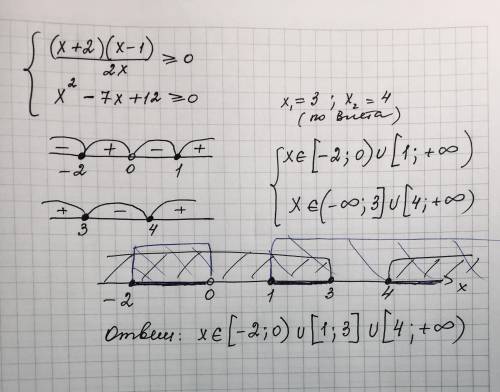 (x+2)(x-1)/2x ≥ 0
x² - 7x + 12 ≥ 0
x₁ = 3 ; x₂ = 4
(по Виета)
- + - +
-2 0 1
x ∈ [-2; 0) ∪ [1; +∞)
x ∈ (-∞; 3] ∪ [4; +∞)
+ - +
3 4
-2 0 1 3 4 x
Ответ: x ∈ [-2; 0) ∪ [1; 3] ∪ [4; +∞)